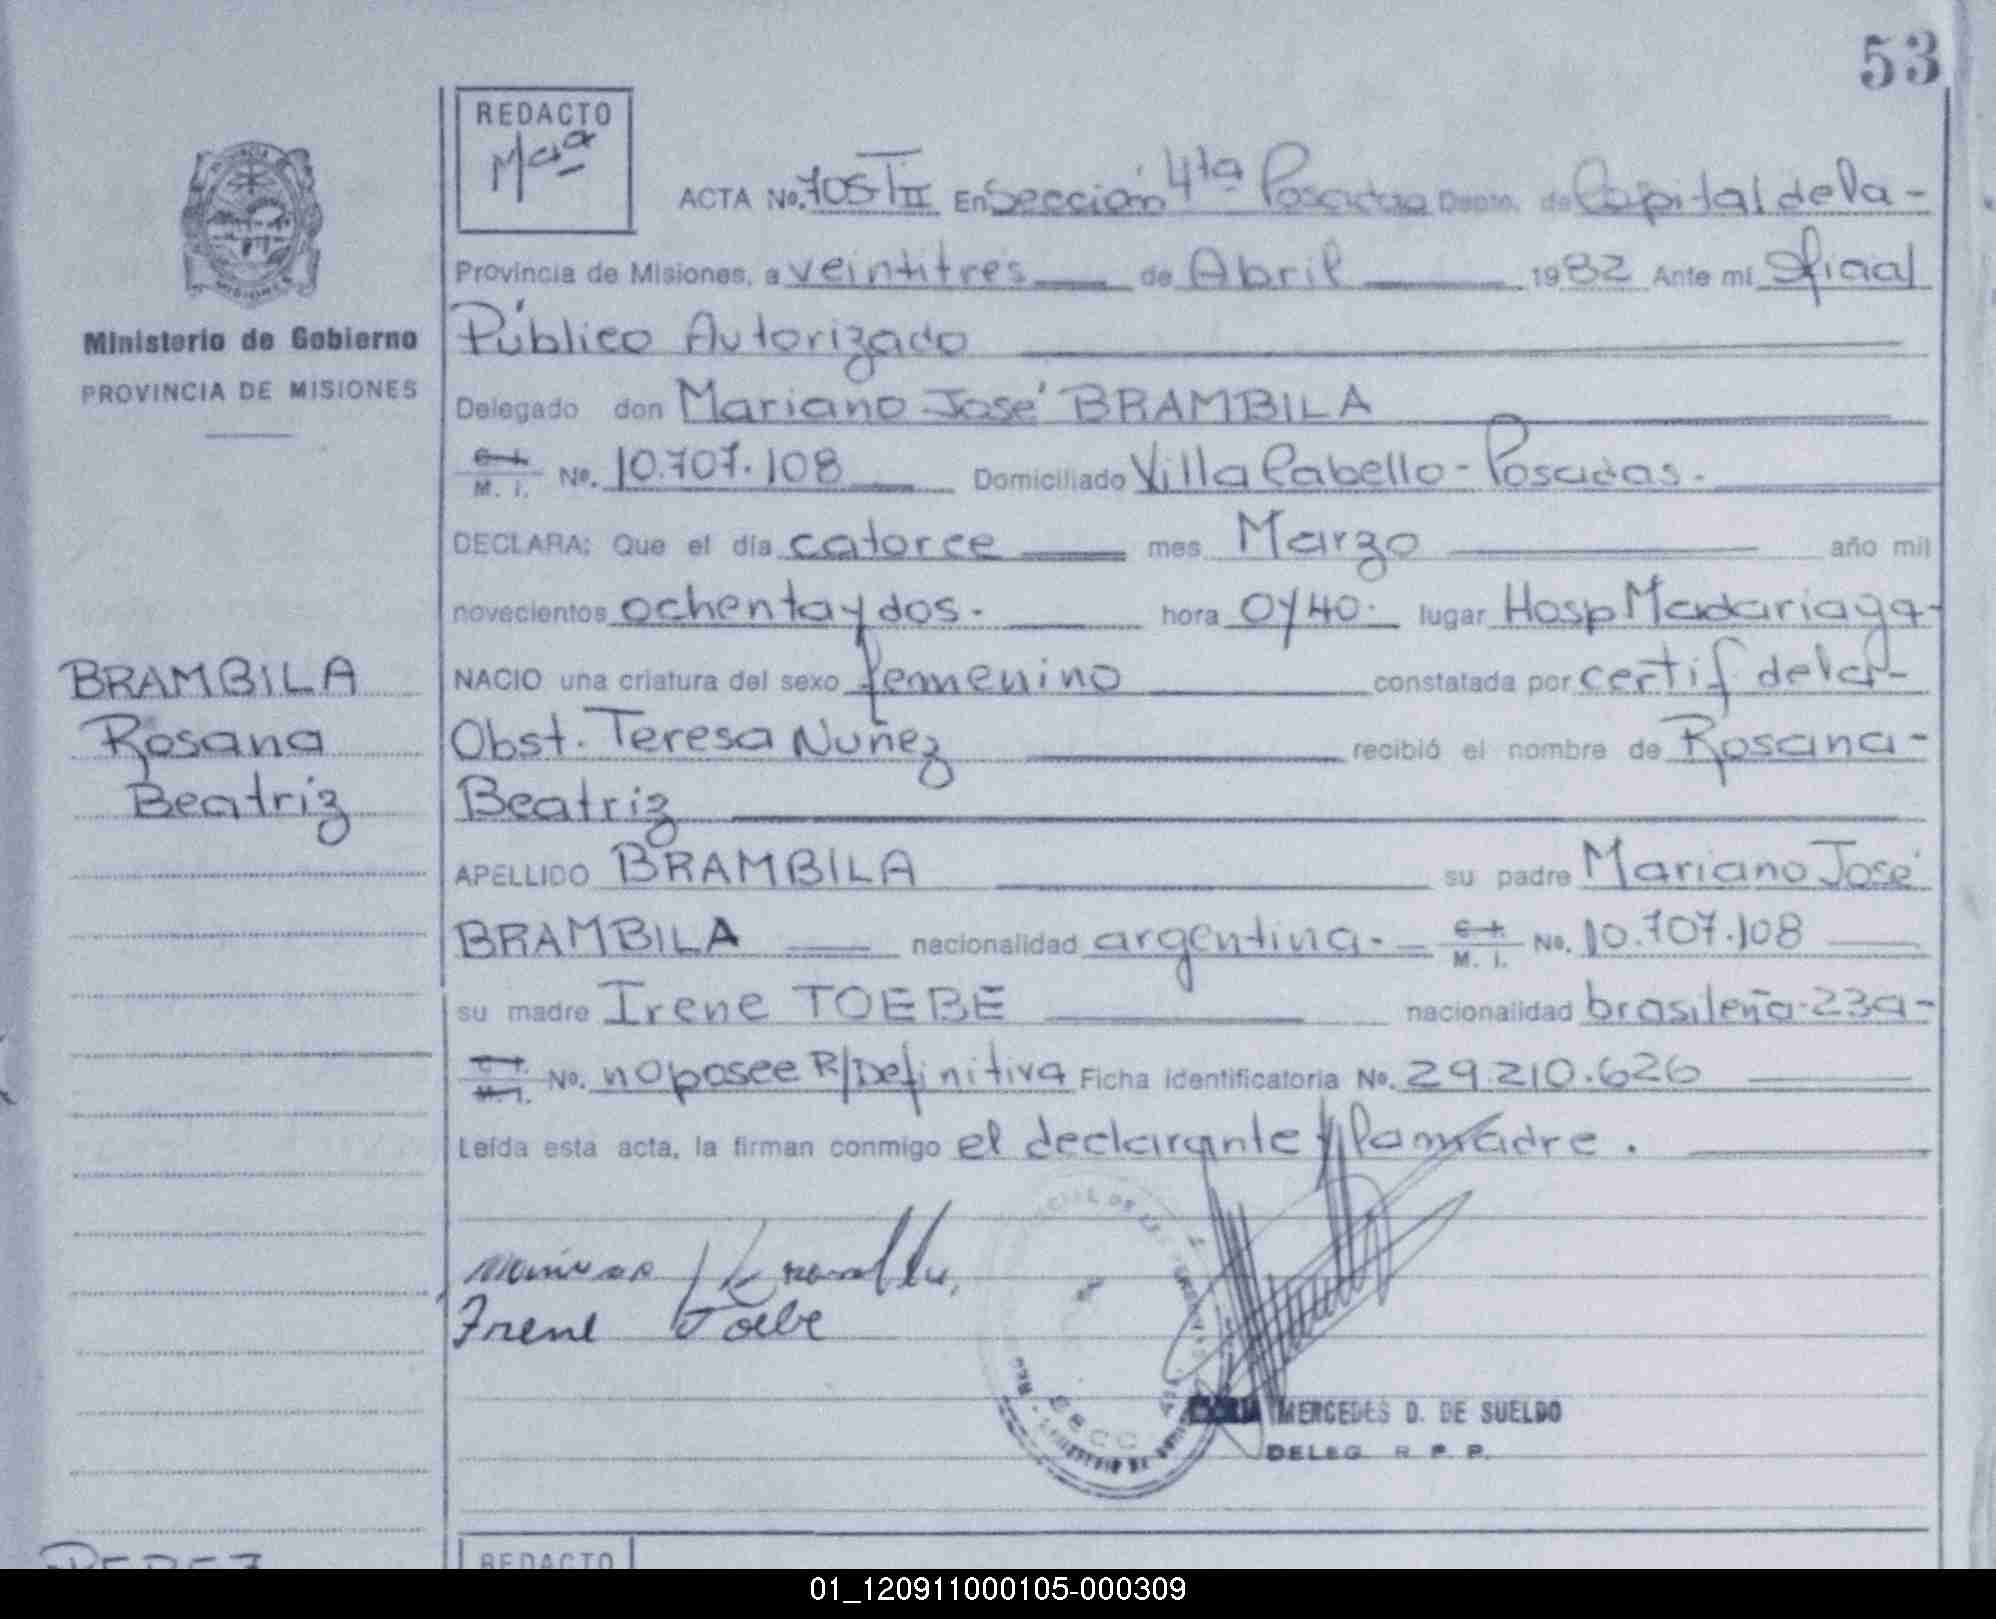 53
REDACTO
Maª
ACTA No. 705-TII En Sección 4ta Posadas Depto. de Capital de la-
Provincia de Misiones, a veintitres de Abril 1982 Ante mí Oficial
Ministerio de Gobierno
PROVINCIA DE MISIONES
Público Autorizado
Delegado don Mariano José BRAMBILA
C. I. M. I. No. 10.707.108 Domiciliado Villa Cabello - Posadas.
DECLARA: Que el día catorce mes Marzo año mil
novecientos ochenta y dos. hora 0y40. lugar Hosp Madariaga-
BRAMBILA
Rosana
Beatriz
NACIO una criatura del sexo femenino constatada por certif de la-
Obst. Teresa Nuñez recibió el nombre de Rosana-
Beatriz
APELLIDO BRAMBILA su padre Mariano José
BRAMBILA nacionalidad argentina.- C. I. M. I. No. 10.707.108
su madre Irene TOEBE nacionalidad brasileña-23a-
C. I. M. I. No. no posee R/Definitiva Ficha identificatoria No. 29.210.626
Leída esta acta, la firman conmigo el declarante y la madre.
Irene Toebe
MERCEDES D. DE SUELDO
DELEG R. P. P.
PEREZ
REDACTO
01_120911000105-000309